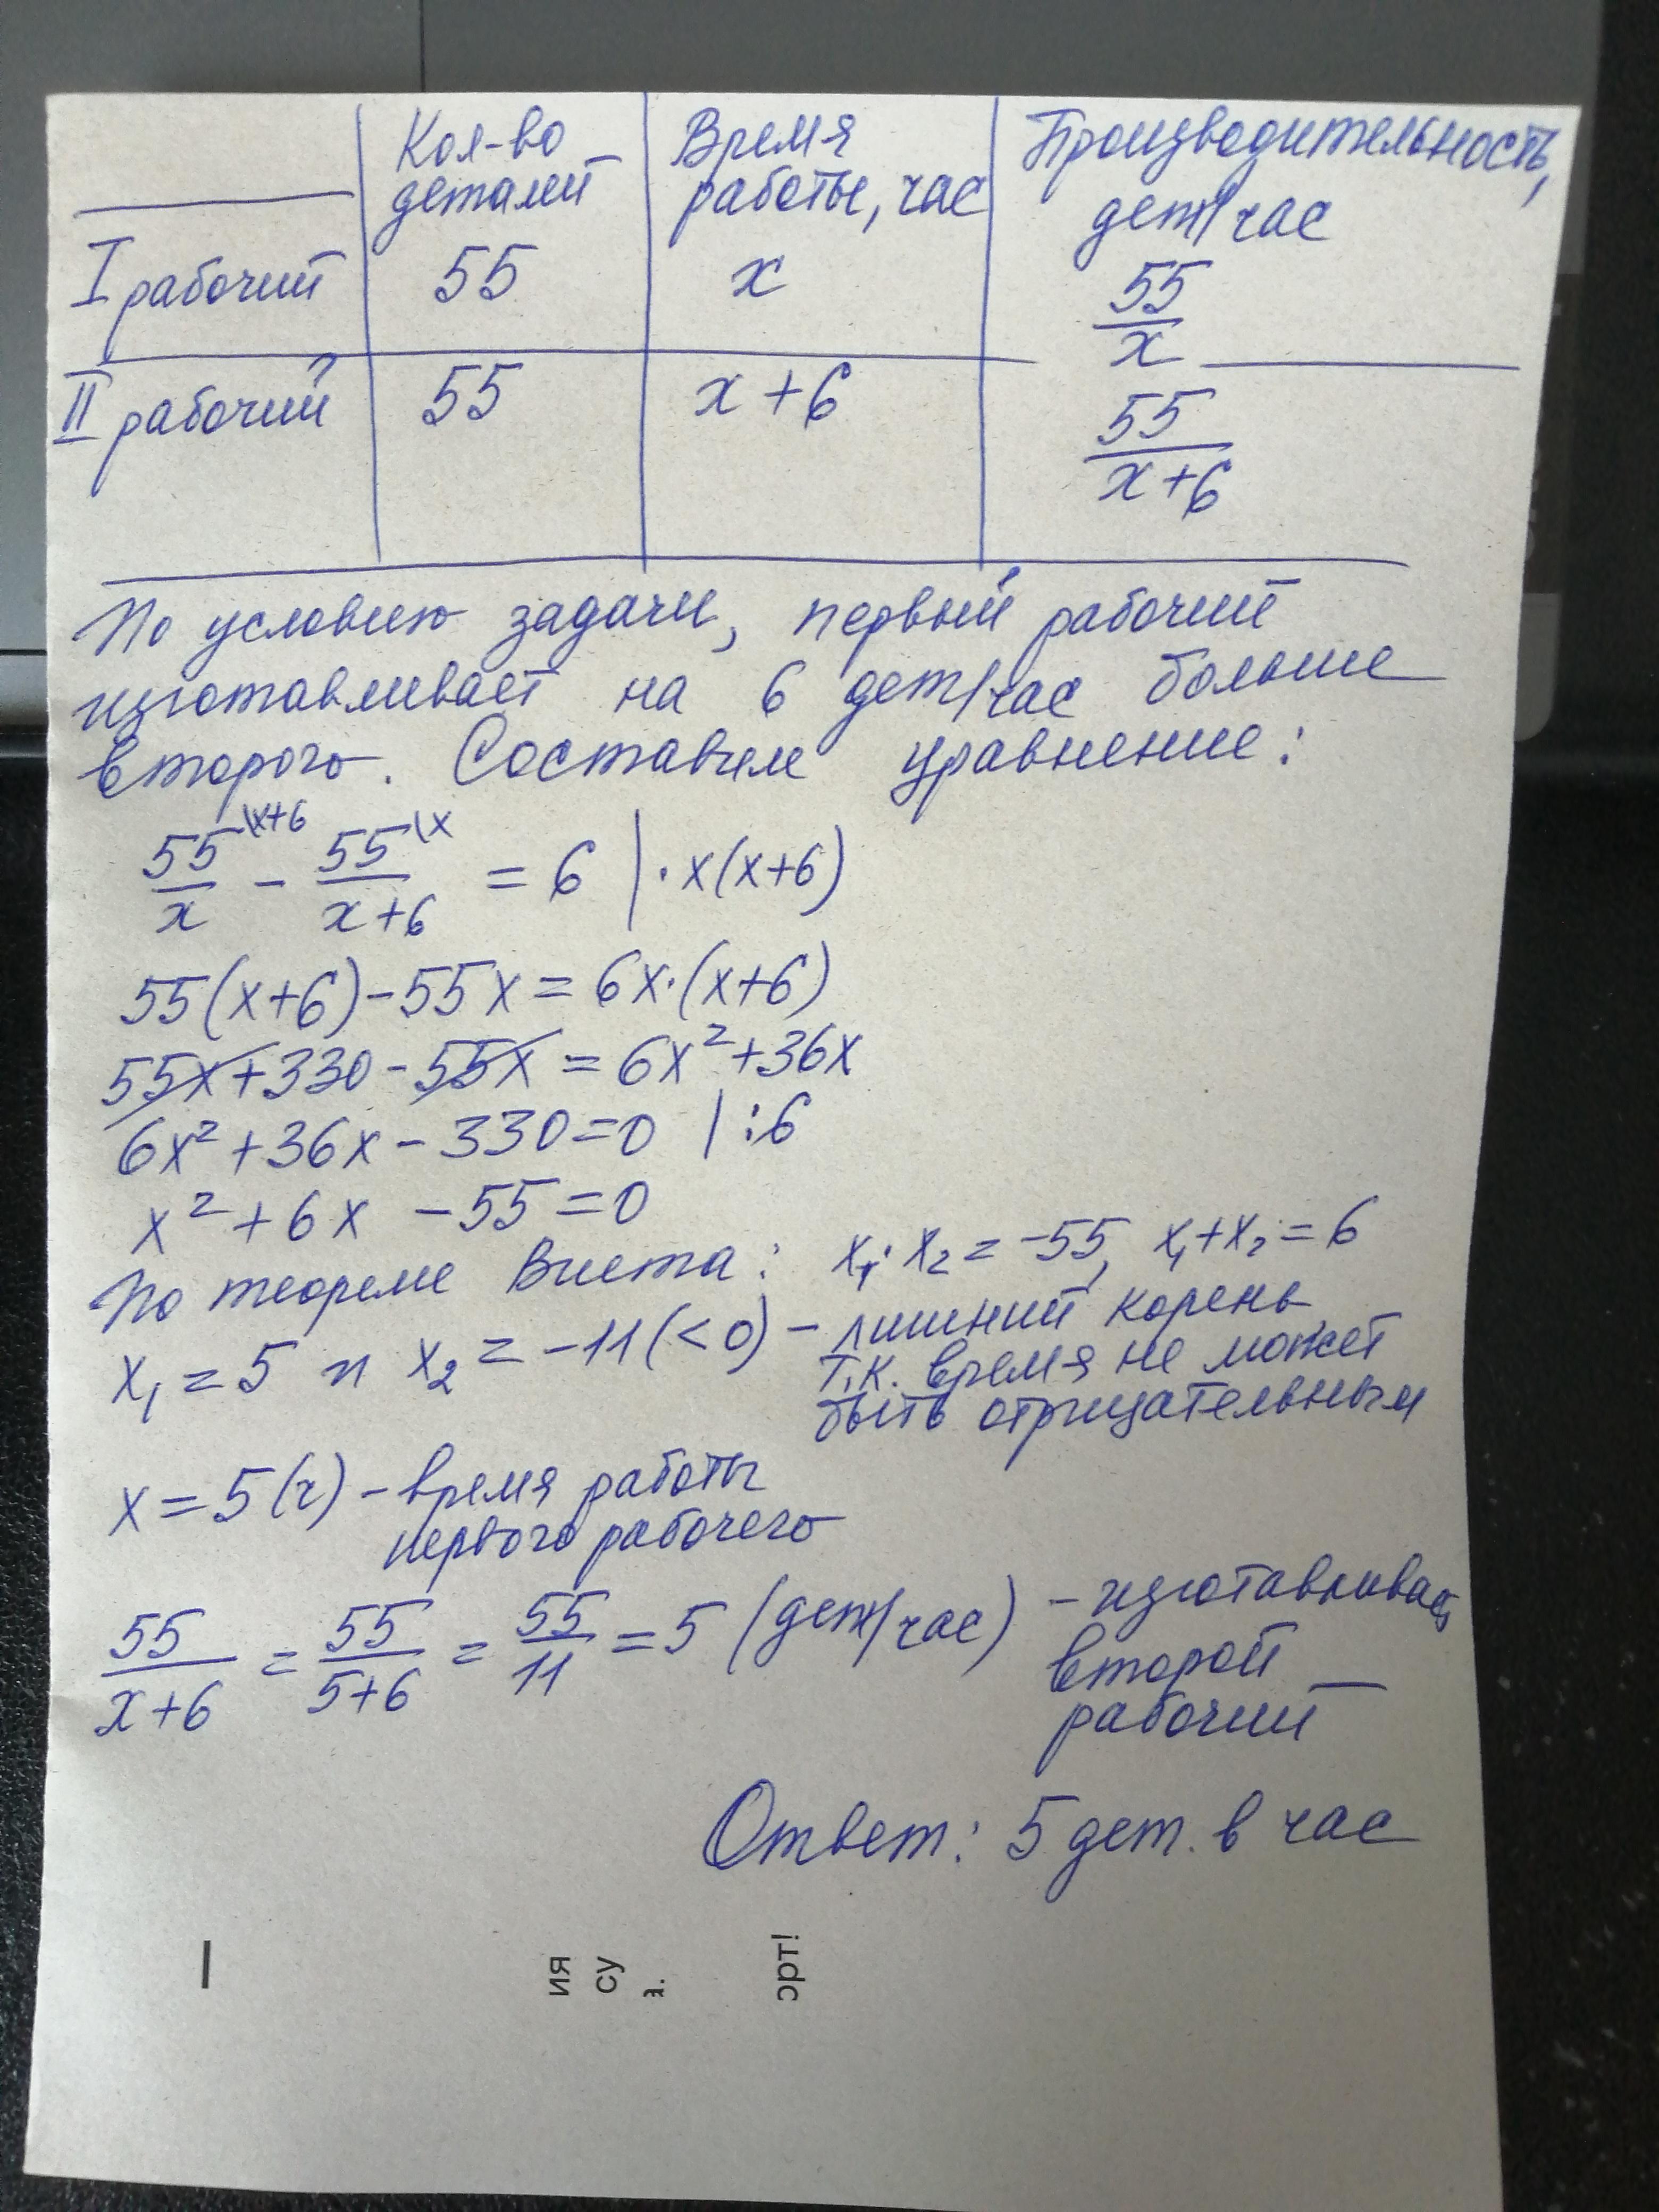 Кол-во деталей | Время работы, час | Производительность, дет/час
I рабочий | 55 | x | 55/x
II рабочий | 55 | x + 6 | 55/(x+6)
По условию задачи, первый рабочий
изготавливает на 6 дет/час больше
второго. Составим уравнение:
55/x \x+6 - 55/(x+6) \x = 6 | · x(x+6)
55(x+6) - 55x = 6x·(x+6)
55x + 330 - 55x = 6x² + 36x
6x² + 36x - 330 = 0 | :6
x² + 6x - 55 = 0
По теореме Виета: x₁·x₂ = -55, x₁+x₂ = 6
x₁ = 5 и x₂ = -11 (<0) - лишний корень
т.к. время не может
быть отрицательным
x = 5 (ч) - время работы
первого рабочего
55/(x+6) = 55/(5+6) = 55/11 = 5 (дет/час) - изготавливает
второй
рабочий
Ответ: 5 дет. в час
ия
су
эрт!